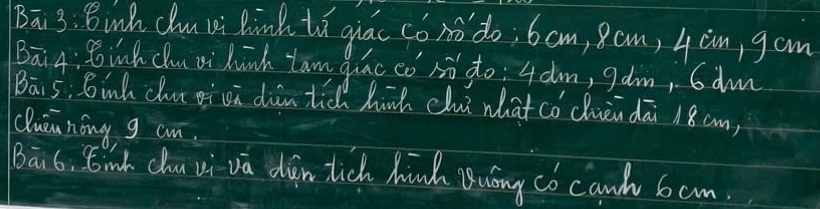 Bài 3: Tính chu vi hình tứ giác có số đo: 6cm, 8cm, 4cm, 9cm
Bài 4: Tính chu vi hình tam giác có số đo: 4dm, 9dm, 6dm
Bài 5: Tính chu vi và diện tích hình chữ nhật có chiều dài 18cm,
chiều rộng 9 cm.
Bài 6: Tính chu vi và diện tích hình vuông có cạnh 6cm.